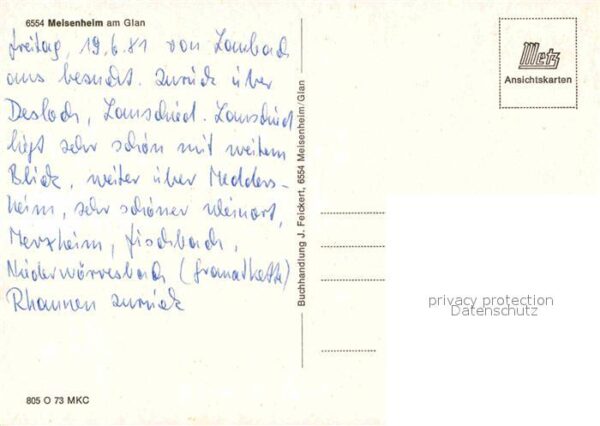 6554 Meisenheim am Glan
Freitag, 19.6.81 von Lombach
aus besucht. Zurück über
Desloch, Lauschied. Lauschied
liegt sehr schön mit weitem
Blick, weiter über Medders-
heim, sehr schöner Weinort,
Merxheim, Fischbach,
Niederwörresbach (Granatkette)
Rhaunen zurück
805 O 73 MKC
Buchhandlung J. Feickert, 6554 Meisenheim/Glan
Metz
Ansichtskarten
privacy protection
Datenschutz